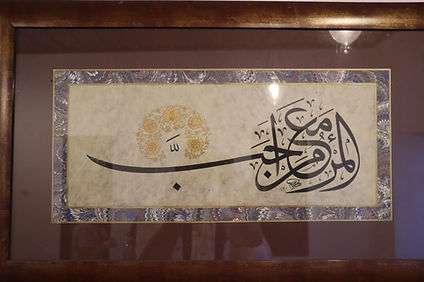 المرء مع من احبّ